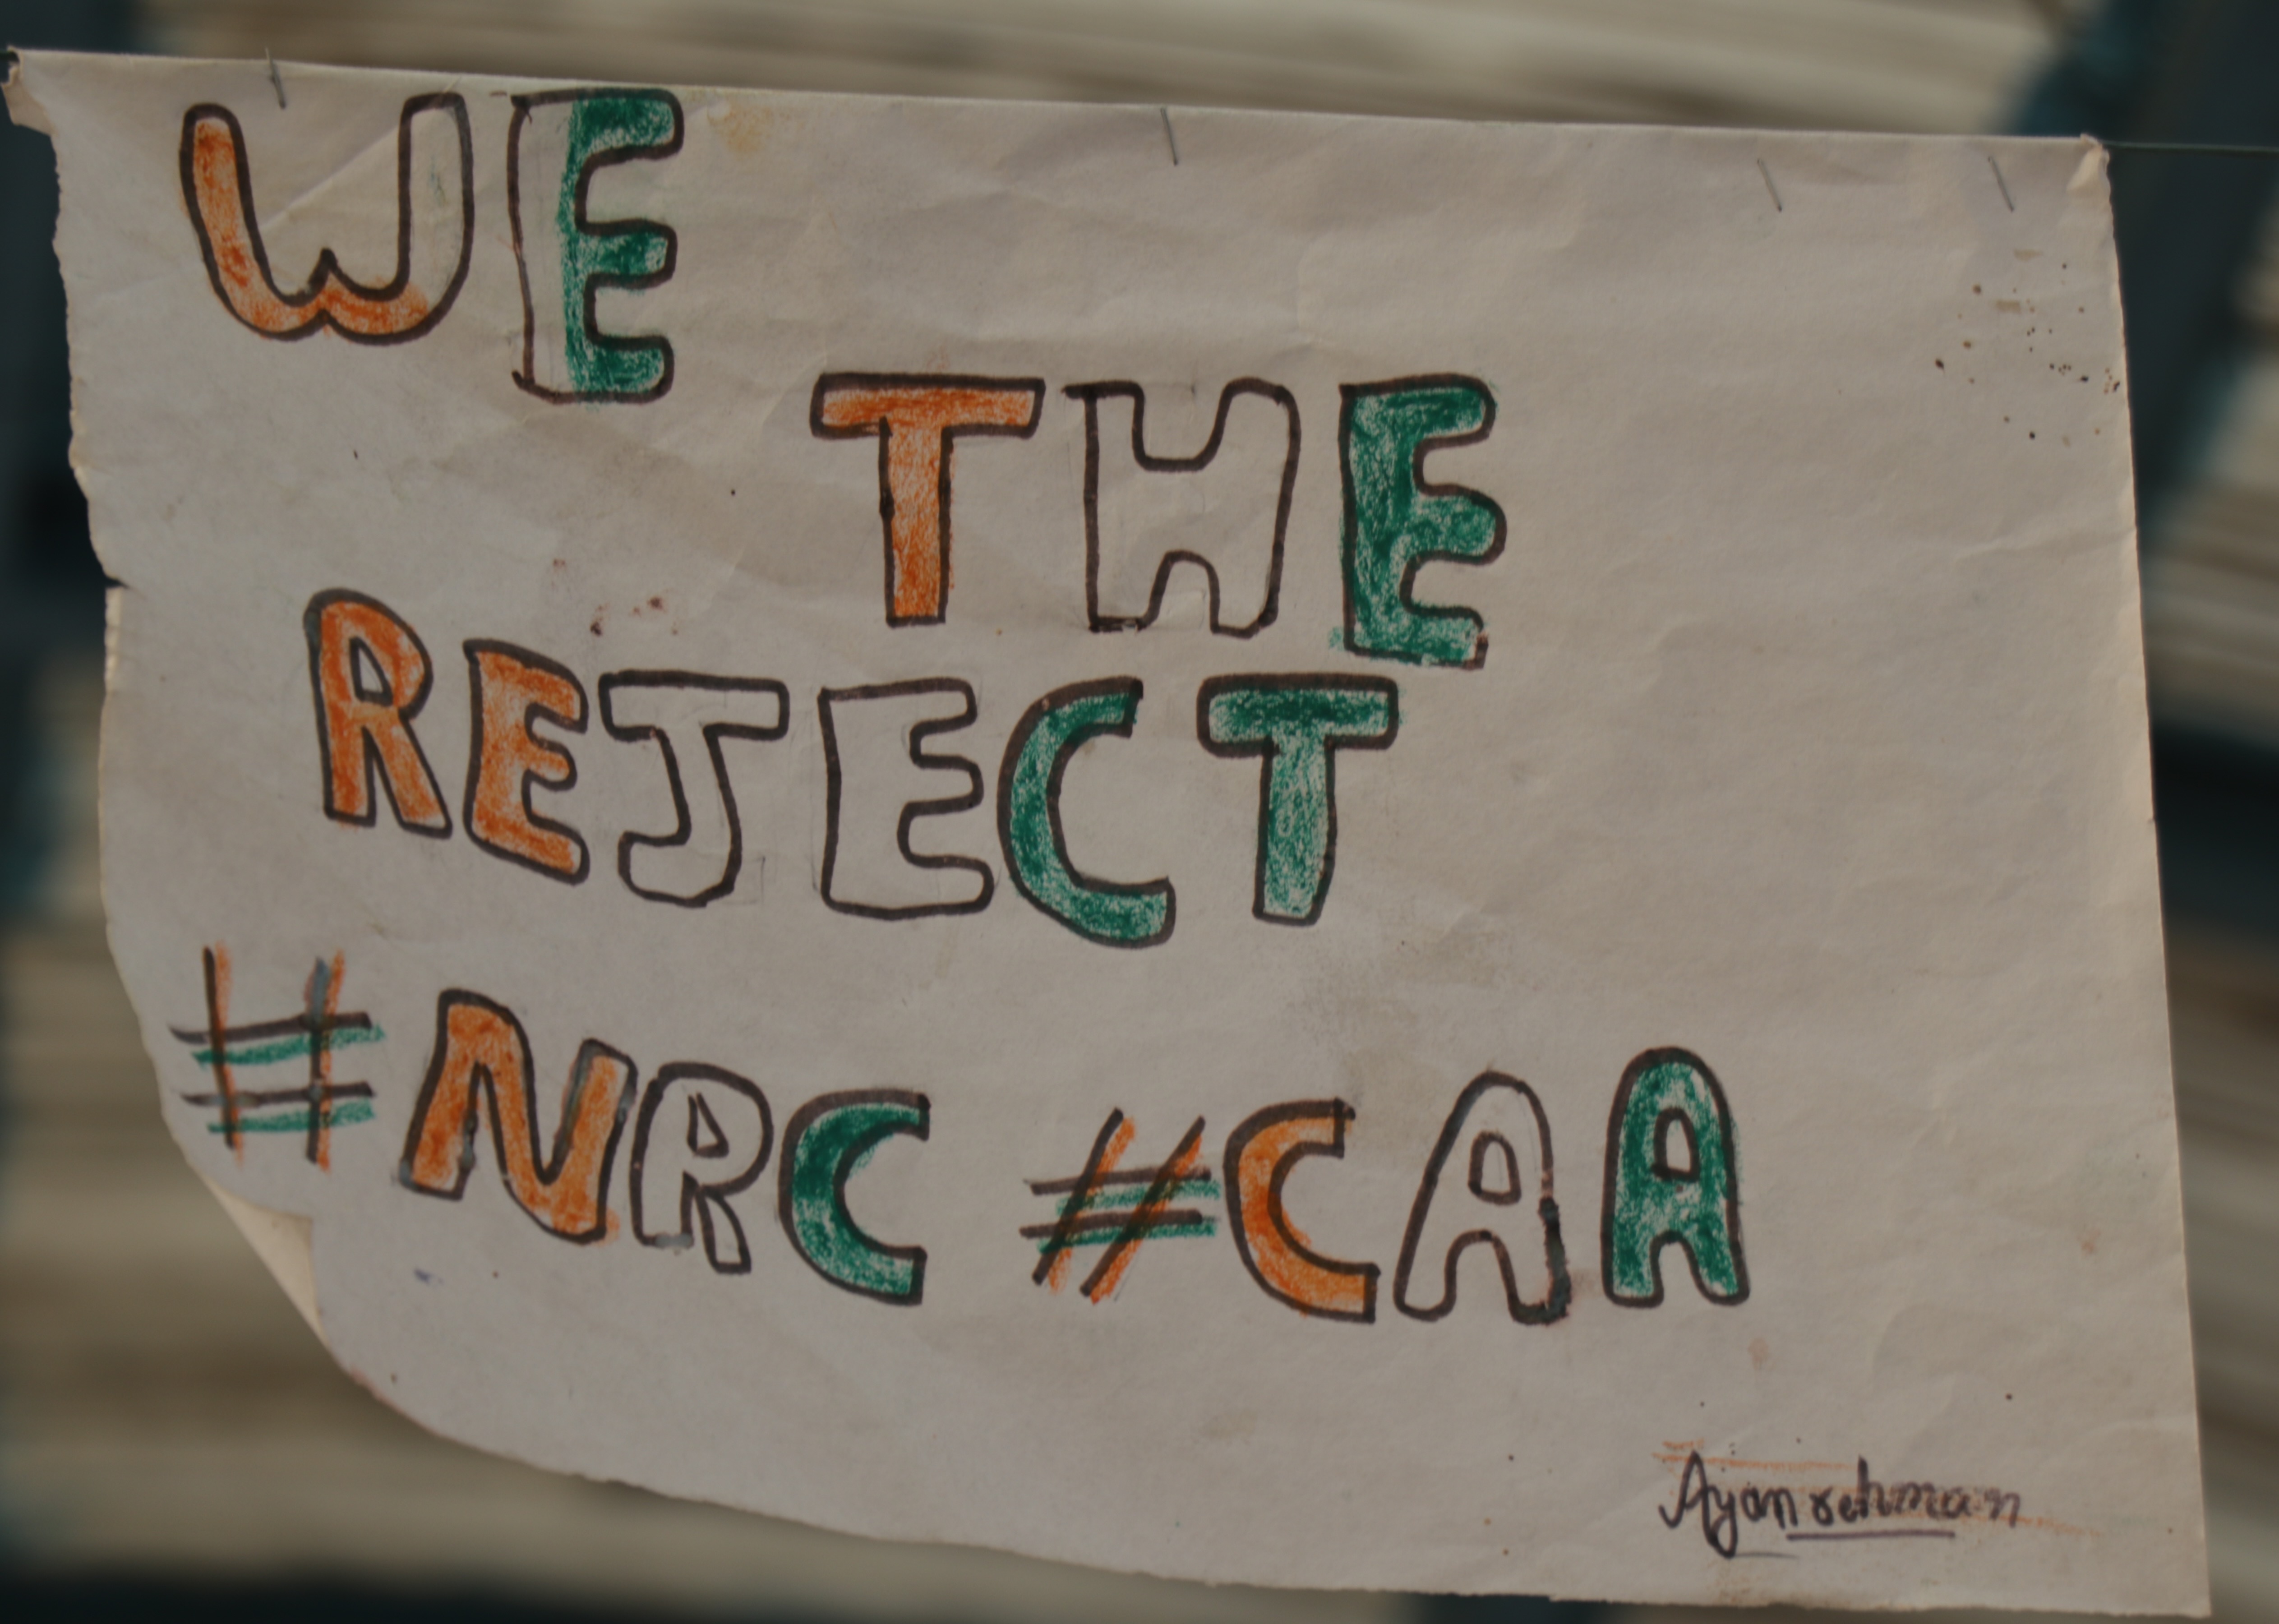 WE
THE
REJECT
#NRC #CAA
Ayan rehman